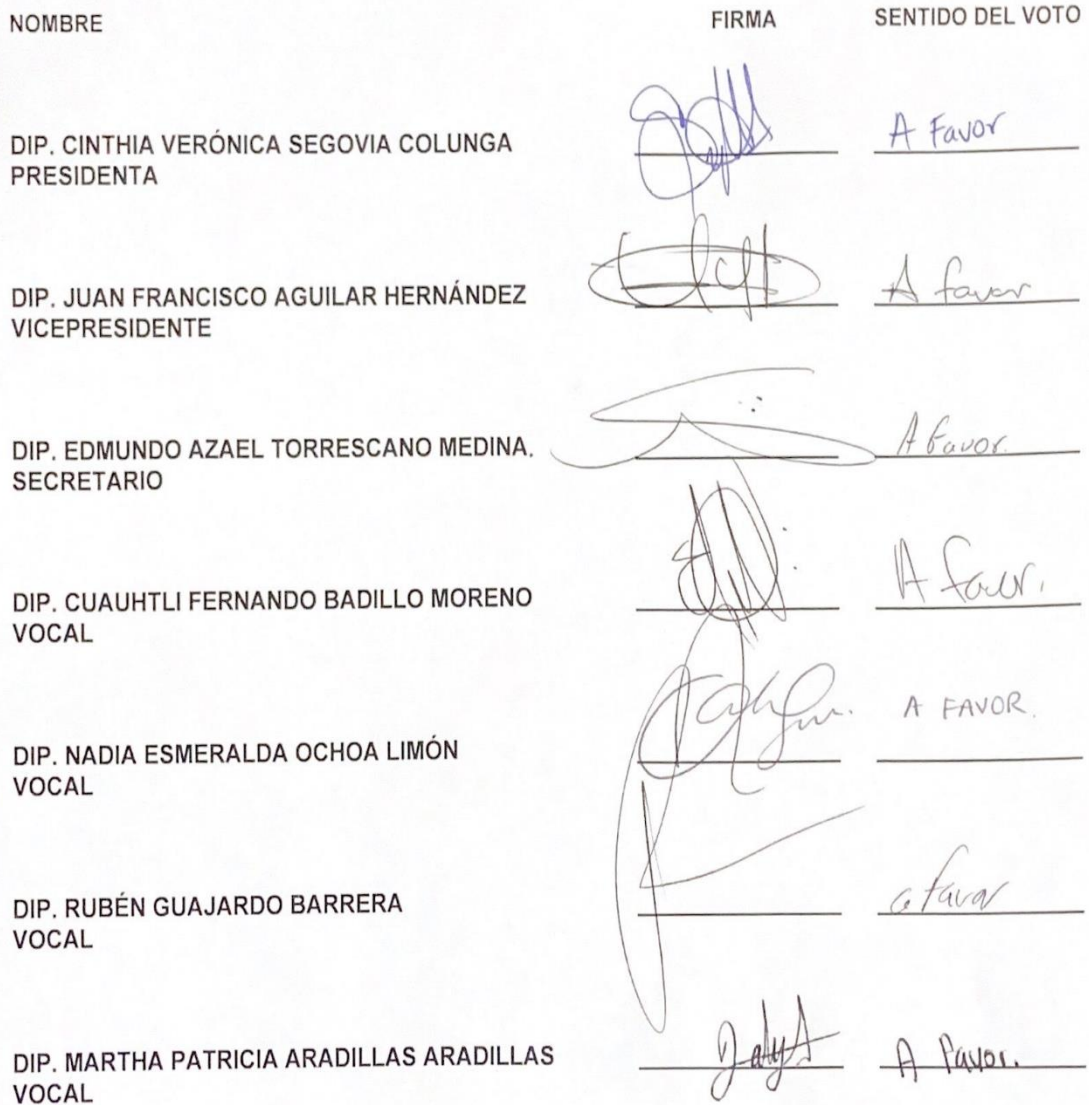 NOMBRE FIRMA SENTIDO DEL VOTO
A Favor
DIP. CINTHIA VERÓNICA SEGOVIA COLUNGA
PRESIDENTA
A favor
DIP. JUAN FRANCISCO AGUILAR HERNÁNDEZ
VICEPRESIDENTE
A favor.
DIP. EDMUNDO AZAEL TORRESCANO MEDINA.
SECRETARIO
A favor.
DIP. CUAUHTLI FERNANDO BADILLO MORENO
VOCAL
A FAVOR.
DIP. NADIA ESMERALDA OCHOA LIMÓN
VOCAL
a favor
DIP. RUBÉN GUAJARDO BARRERA
VOCAL
A Favor.
DIP. MARTHA PATRICIA ARADILLAS ARADILLAS
VOCAL